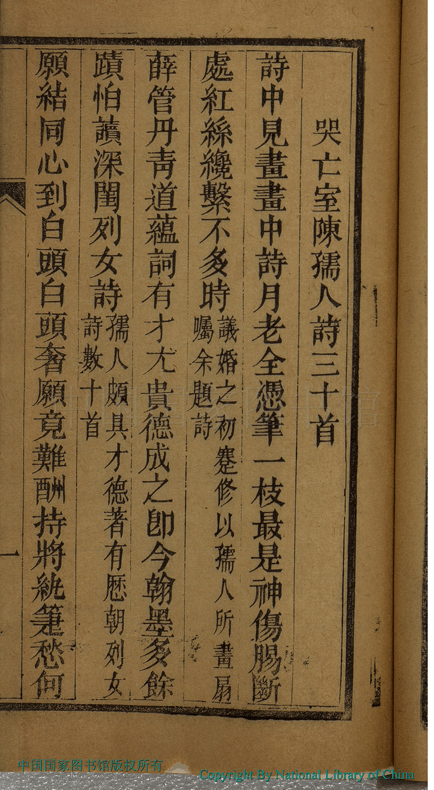 哭亡室陳孺人詩三十首
詩中見畫畫中詩月老全憑筆一枝最是神傷腸斷
處紅絲纔繫不多時議婚之初蹇修以孺人所畫扇
囑余題詩
薛管丹靑道蘊詞有才尤貴德成之卽今翰墨多餘
蹟怕讀深閨列女詩孺人頗具才德著有歷朝列女
詩數十首
願結同心到白頭白頭奢願竟難酬持將統箑愁何
一
中国国家图书馆版权所有
Copyright By National Library of China